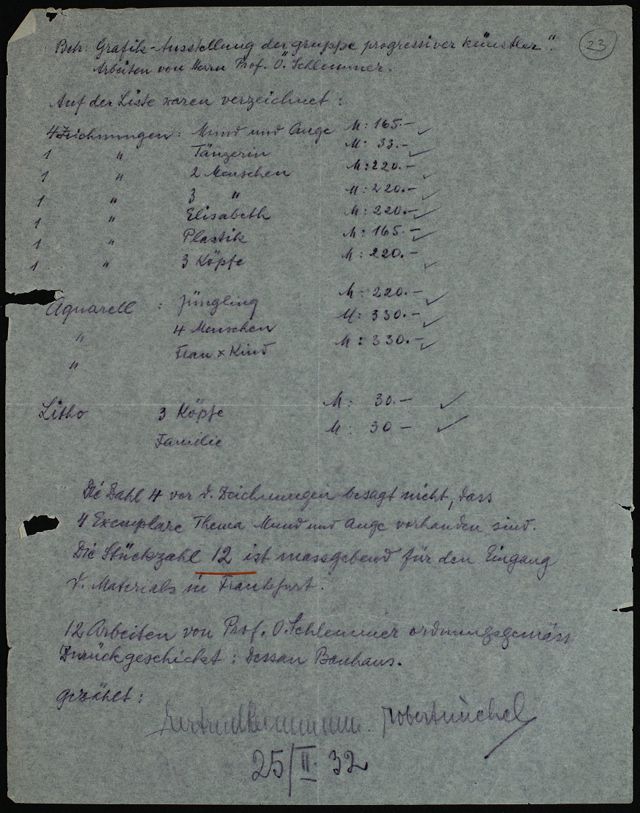 Betr: Grafik-Ausstellung der "gruppe progressiver künstler".
23
Arbeiten von Herrn Prof. O. Schlemmer.
Auf der Liste waren verzeichnet:
4 Zeichnungen: Mund und Auge M: 165.-
1 " Tänzerin M: 33.-
1 " 2 Menschen M: 220.-
1 " 3 " M: 220.-
1 " Elisabeth M: 220.-
1 " Plastik M: 165.-
1 " 3 Köpfe M: 220.-
Aquarell : Jüngling M: 220.-
" 4 Menschen M: 330.-
" Frau x Kind M: 330.-
Litho 3 Köpfe M: 30.-
Familie M: 30 -
Die Zahl 4 vor d. Zeichnungen besagt nicht, dass
4 Exemplare Thema Mund und Auge vorhanden sind.
Die Stückzahl 12 ist massgebend für den Eingang
d. Materials in Frankfurt.
12 Arbeiten von Prof. O. Schlemmer ordnungsgemäss
Zurückgeschickt: Dessau Bauhaus.
gezählt:
robert michel
25/II. 32